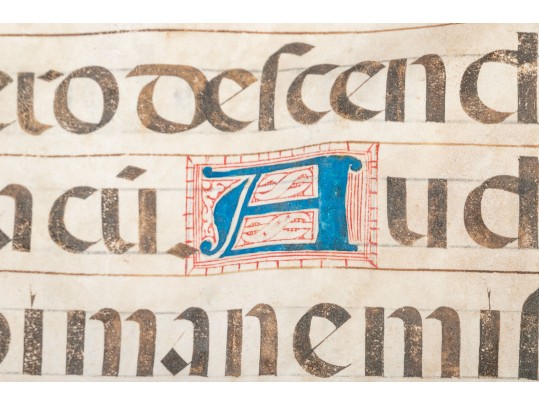 ero deſcend
ncū. Aud
imanemiſ